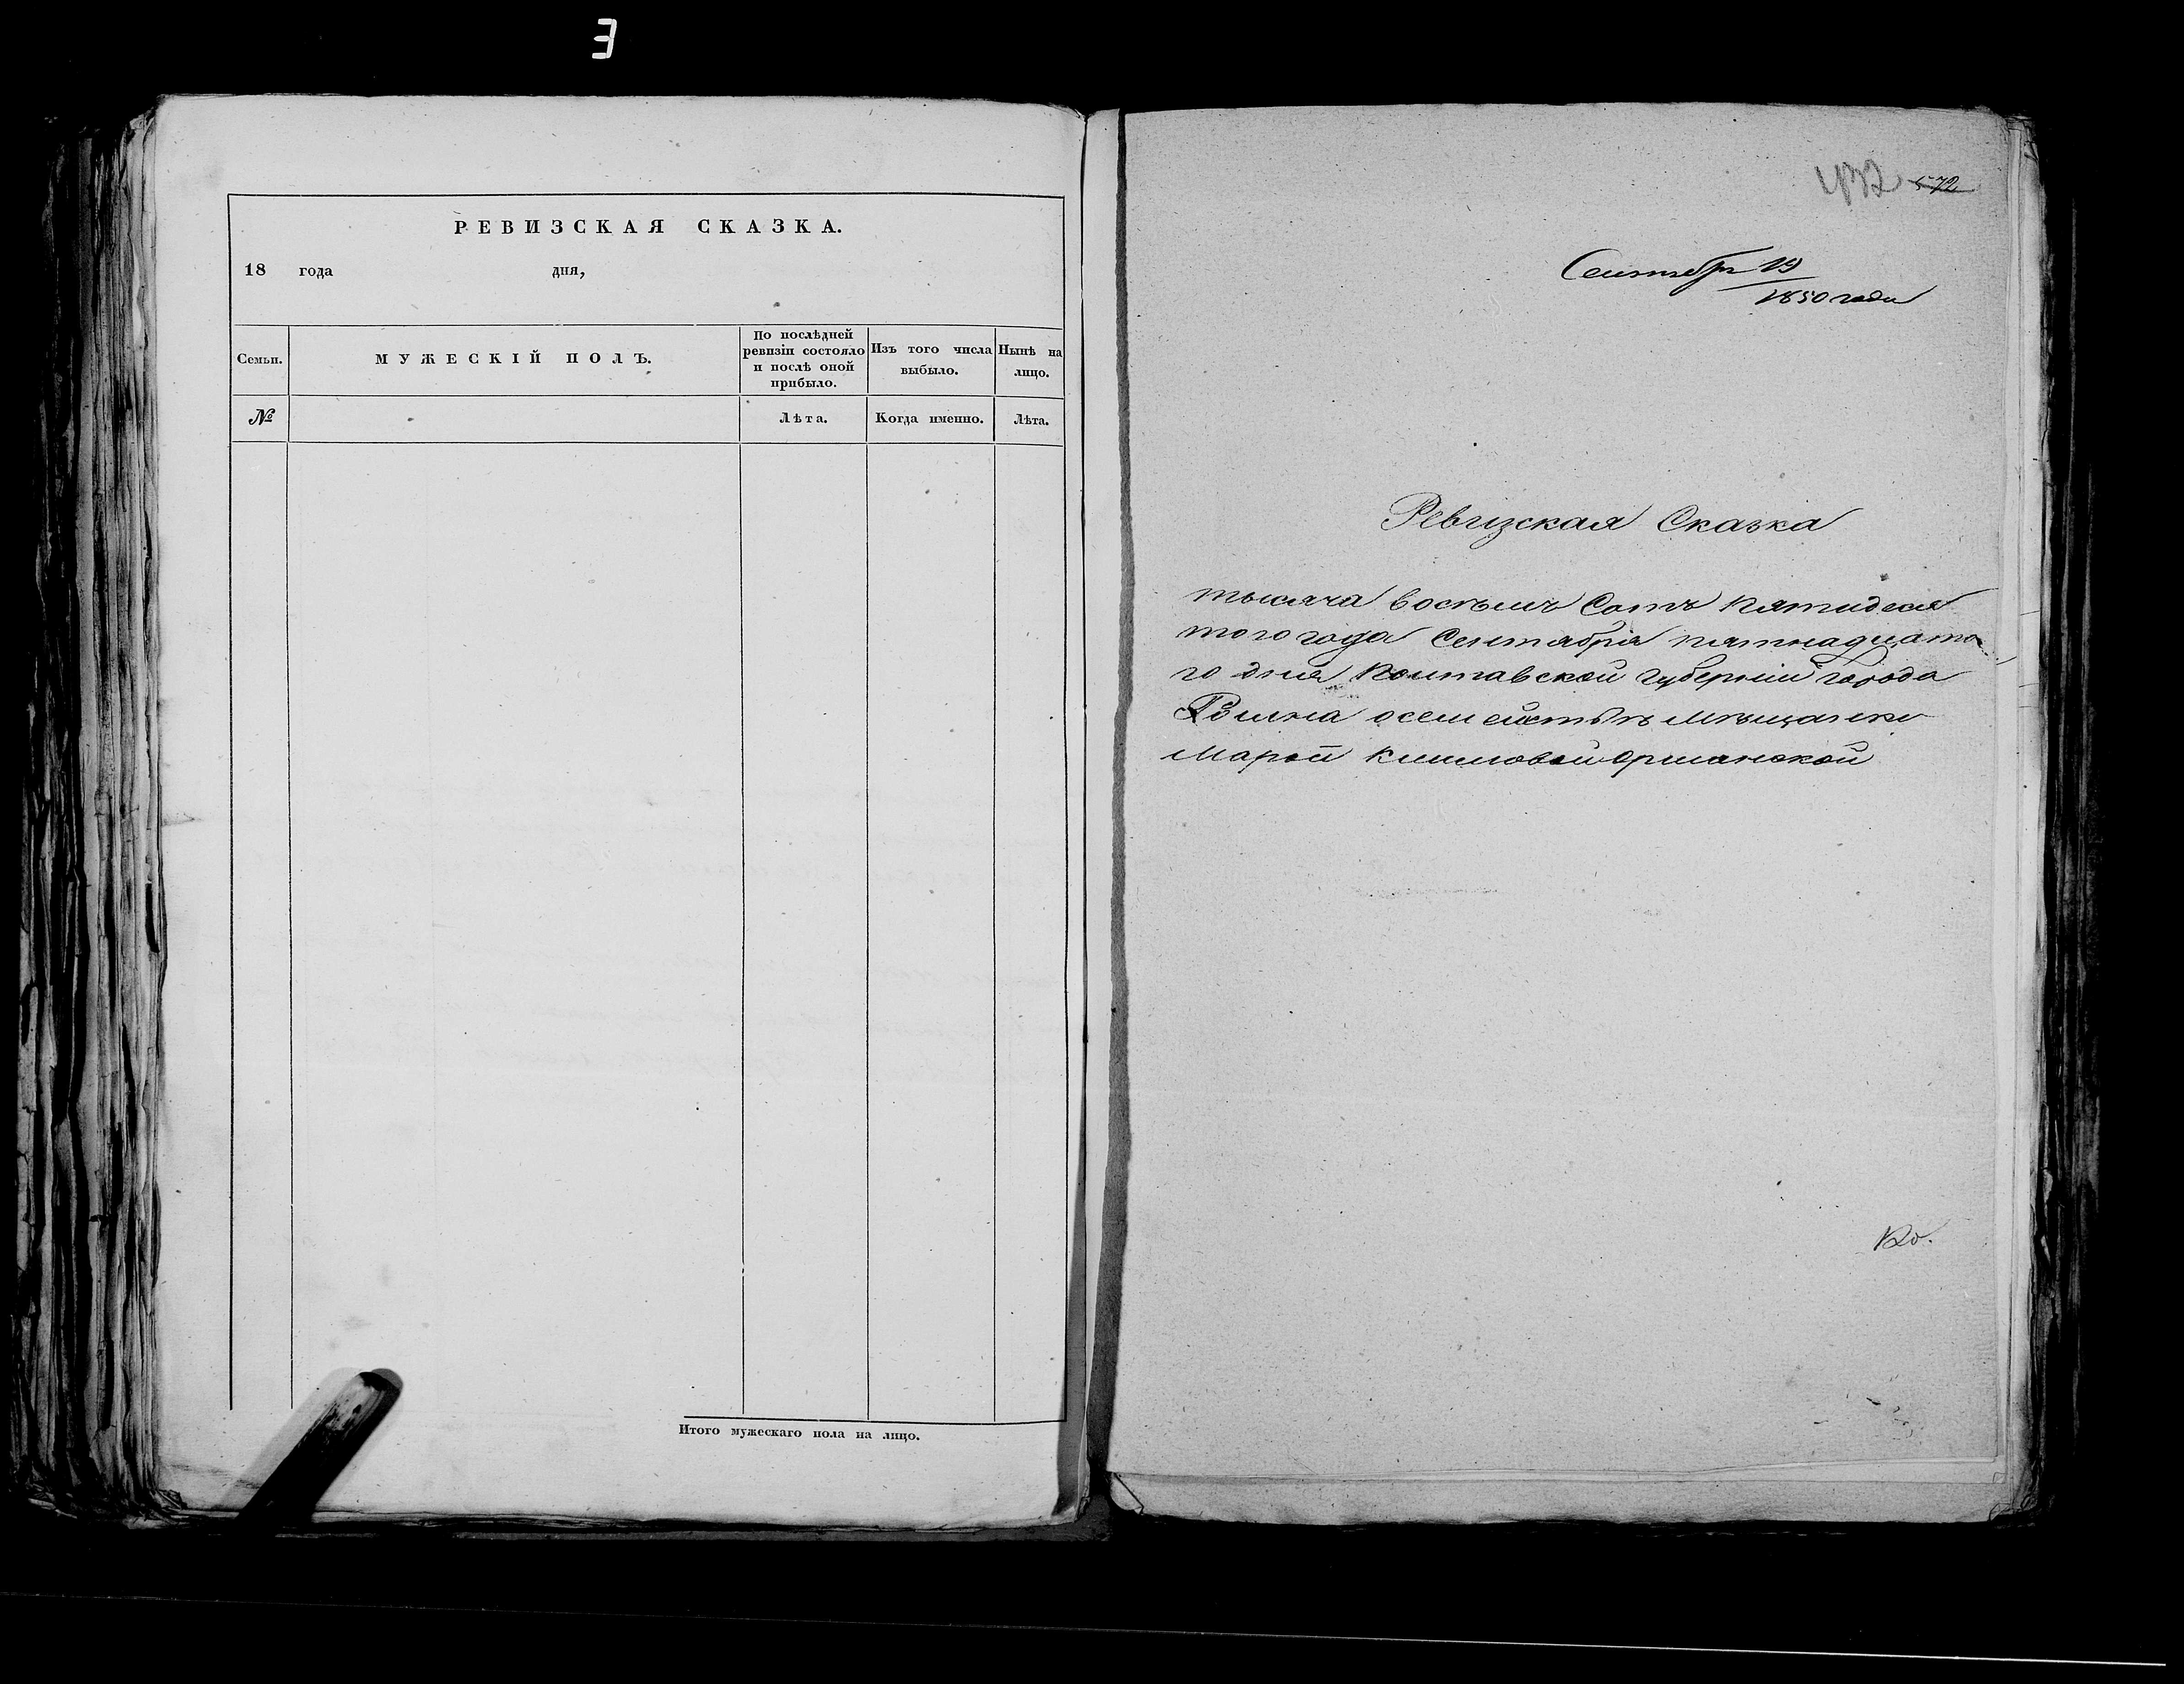 РЕВИЗСКАЯ СКАЗКА.
18 года дня,
Семьи.
МУЖЕСКІЙ ПОЛЪ.
По послѣдней ревизіи состояло и послѣ оной прибыло.
Изъ того числа выбыло.
Нынѣ на лицо.
№
Лѣта.
Когда именно.
Лѣта.
Итого мужескаго пола на лицо.
432 572
Сентября 19
1850 года
Ревизская Сказка
тысяча восемь Сотъ пятидеся
того года Сентября пятнадцато
го дня Полтавской губерніи города
Ромна о семействѣ мѣщанки
Марьи Климовой Оршанской